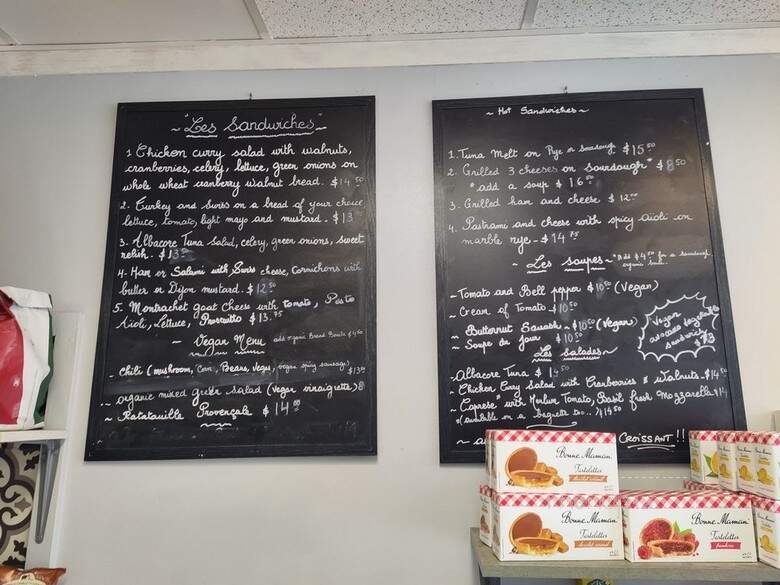 ~ "Les Sandwiches" ~
1. Chicken curry salad with walnuts,
cranberries, celery, lettuce, green onions on
whole wheat cranberry walnut bread. $14 50
2. Turkey and swiss on a bread of your choice
lettuce, tomato, light mayo and mustard. $13
3. Albacore Tuna salad, celery, green onions, sweet
relish. $13
4. Ham or Salami with Swiss cheese, Cornichons with
butter or Dijon mustard. $12 50
5. Montrachet goat Cheese with tomato, Pesto
Aioli, Lettuce, Prosciutto $13.75
~ Vegan Menu
add organic Bread Bowl $4 50
~ Chili (mushroom, Corn, Beans, Vegs, vegan spicy sausage) $13
~ organic mixed green Salad (Vegan vinaigrette) 8
~ Ratatouille Provençale $14 00
~ Hot Sandwiches ~
1. Tuna Melt on Rye or Sourdough $15 50
2. Grilled 3 cheeses on sourdough * $8 50
* add a soup $16
3. Grilled ham and cheese $12
4. Pastrami and cheese with spicy aioli on
marble rye - $14 75
~ Les soupes ~
* Add $4 50 for a Sourdough
organic
~ Tomato and Bell pepper $10 50 (Vegan)
~ Cream of Tomato $10 50
~ Butternut Squash - $10 50 (Vegan)
~ Soupe du jour $10 50
Vegan
avocado
sandwich
$13
Les Salades ~
~ Albacore Tuna $14 50
~ Chicken Curry Salad with Cranberries & walnuts $14
~ Caprese * with Tomato, Basil fresh Mozzarella $14
* (available on a baguette $14 50
CROISSANT!!
Bonne Maman
Tartelettes
chocolat caramel
Bonne Maman
Tartelettes
chocolat caramel
Bonne Maman
Tartelettes
framboise